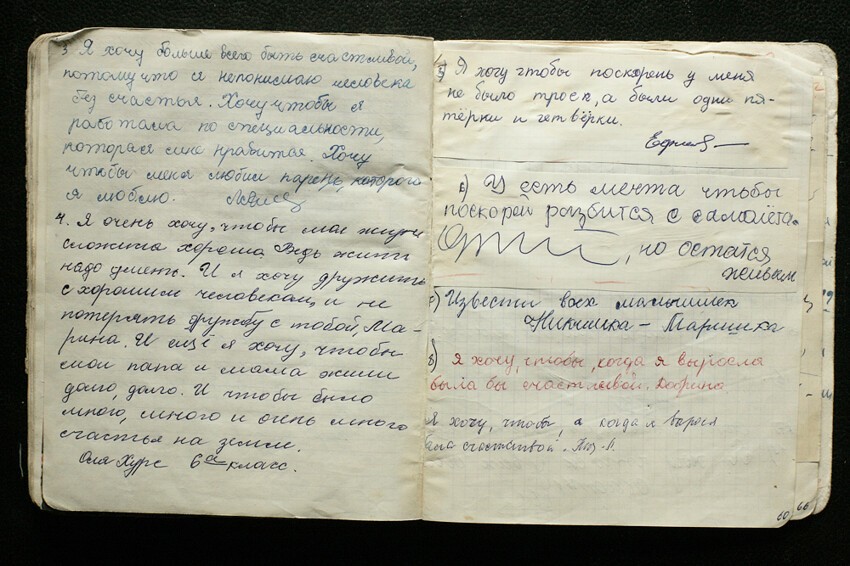 3. Я хочу больше всего быть счастливой,
потому что я непонимаю человека
без счастья. Хочу чтобы я
работала по специальности,
которая мне нравится. Хочу
чтобы меня любил парень, которого
я люблю.
4. Я очень хочу, чтобы моя жизнь
сложила хорошо. Ведь жить
надо уметь. И я хочу дружить
с хорошим человеком, и не
потерять дружбу с тобой, Ма-
рина. И ещё я хочу, чтобы
мои папа и мама жили
долго, долго. И чтобы было
много, много и очень много
счастья на земле.
Оля Хурс 6а класс.
Я хочу чтобы поскорень у меня
не было троек, а были одни пя-
тёрки и четвёрки.
в) У есть мечта чтобы
поскорей разбится с самолёта.
, но остатся
живым
Извести всех малышилек
Никишка - Маришка
Я хочу, чтобы, когда я выросла
была бы счастливой. Дофрина
Я хочу, чтобы, а когда я вырос
была счастливой.
60
66